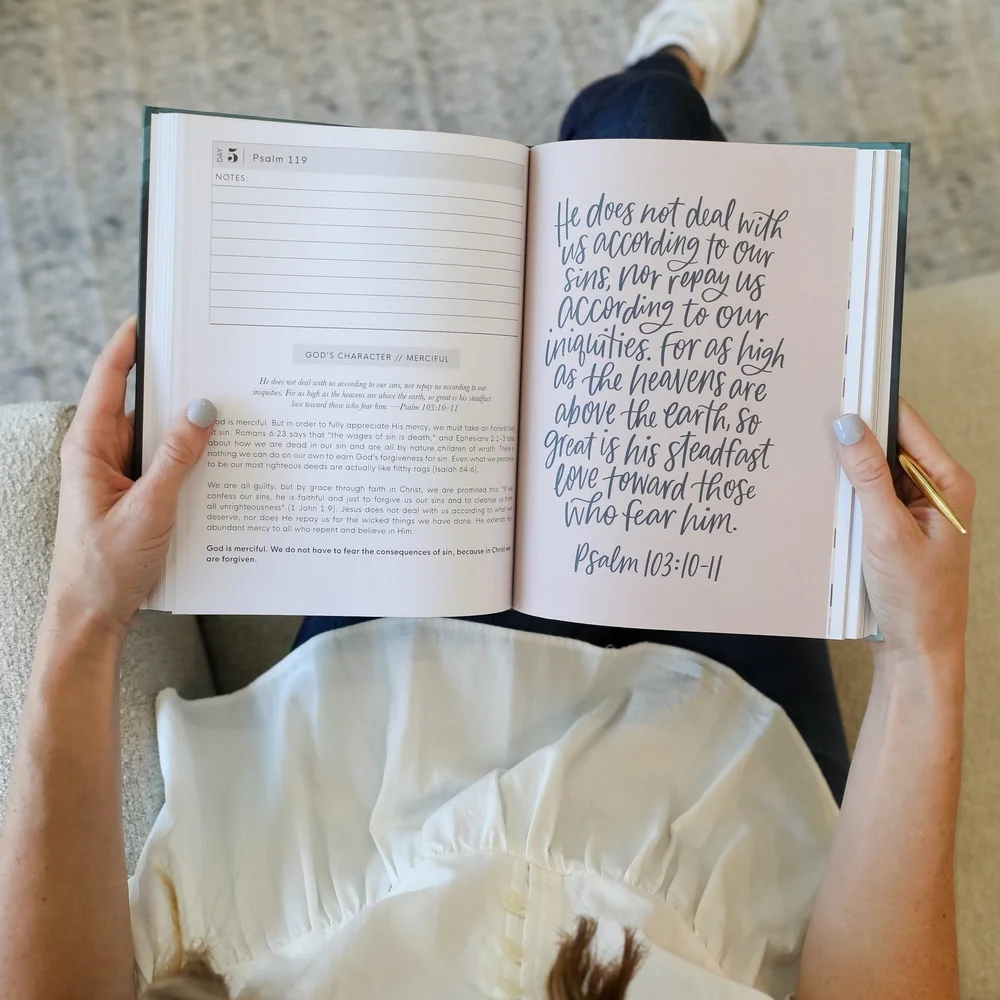 DAY 5 Psalm 119
NOTES:
GOD'S CHARACTER // MERCIFUL
He does not deal with us according to our sins, nor repay us according to our
iniquities. For as high as the heavens are above the earth, so great is his steadfast
love toward those who fear him. —Psalm 103:10-11
is merciful. But in order to fully appreciate His mercy, we must take an honest
at sin. Romans 6:23 says that "the wages of sin is death," and Ephesians 2:1-3
about how we are dead in our sin and are all by nature children of wrath. There
nothing we can do on our own to earn God's forgiveness for sin. Even what we
to be our most righteous deeds are actually like filthy rags (Isaiah 64:6).
We are all guilty, but by grace through faith in Christ, we are promised this: "If
confess our sins, he is faithful and just to forgive us our sins and to cleanse us
all unrighteousness" (1 John 1:9). Jesus does not deal with us according to what
deserve, nor does He repay us for the wicked things we have done. He extends
abundant mercy to all who repent and believe in Him.
God is merciful. We do not have to fear the consequences of sin, because in Christ
are forgiven.
He does not deal with
us according to our
sins, nor repay us
according to our
iniquities. For as high
as the heavens are
above the earth, so
great is his steadfast
love toward those
who fear him.
Psalm 103:10-11